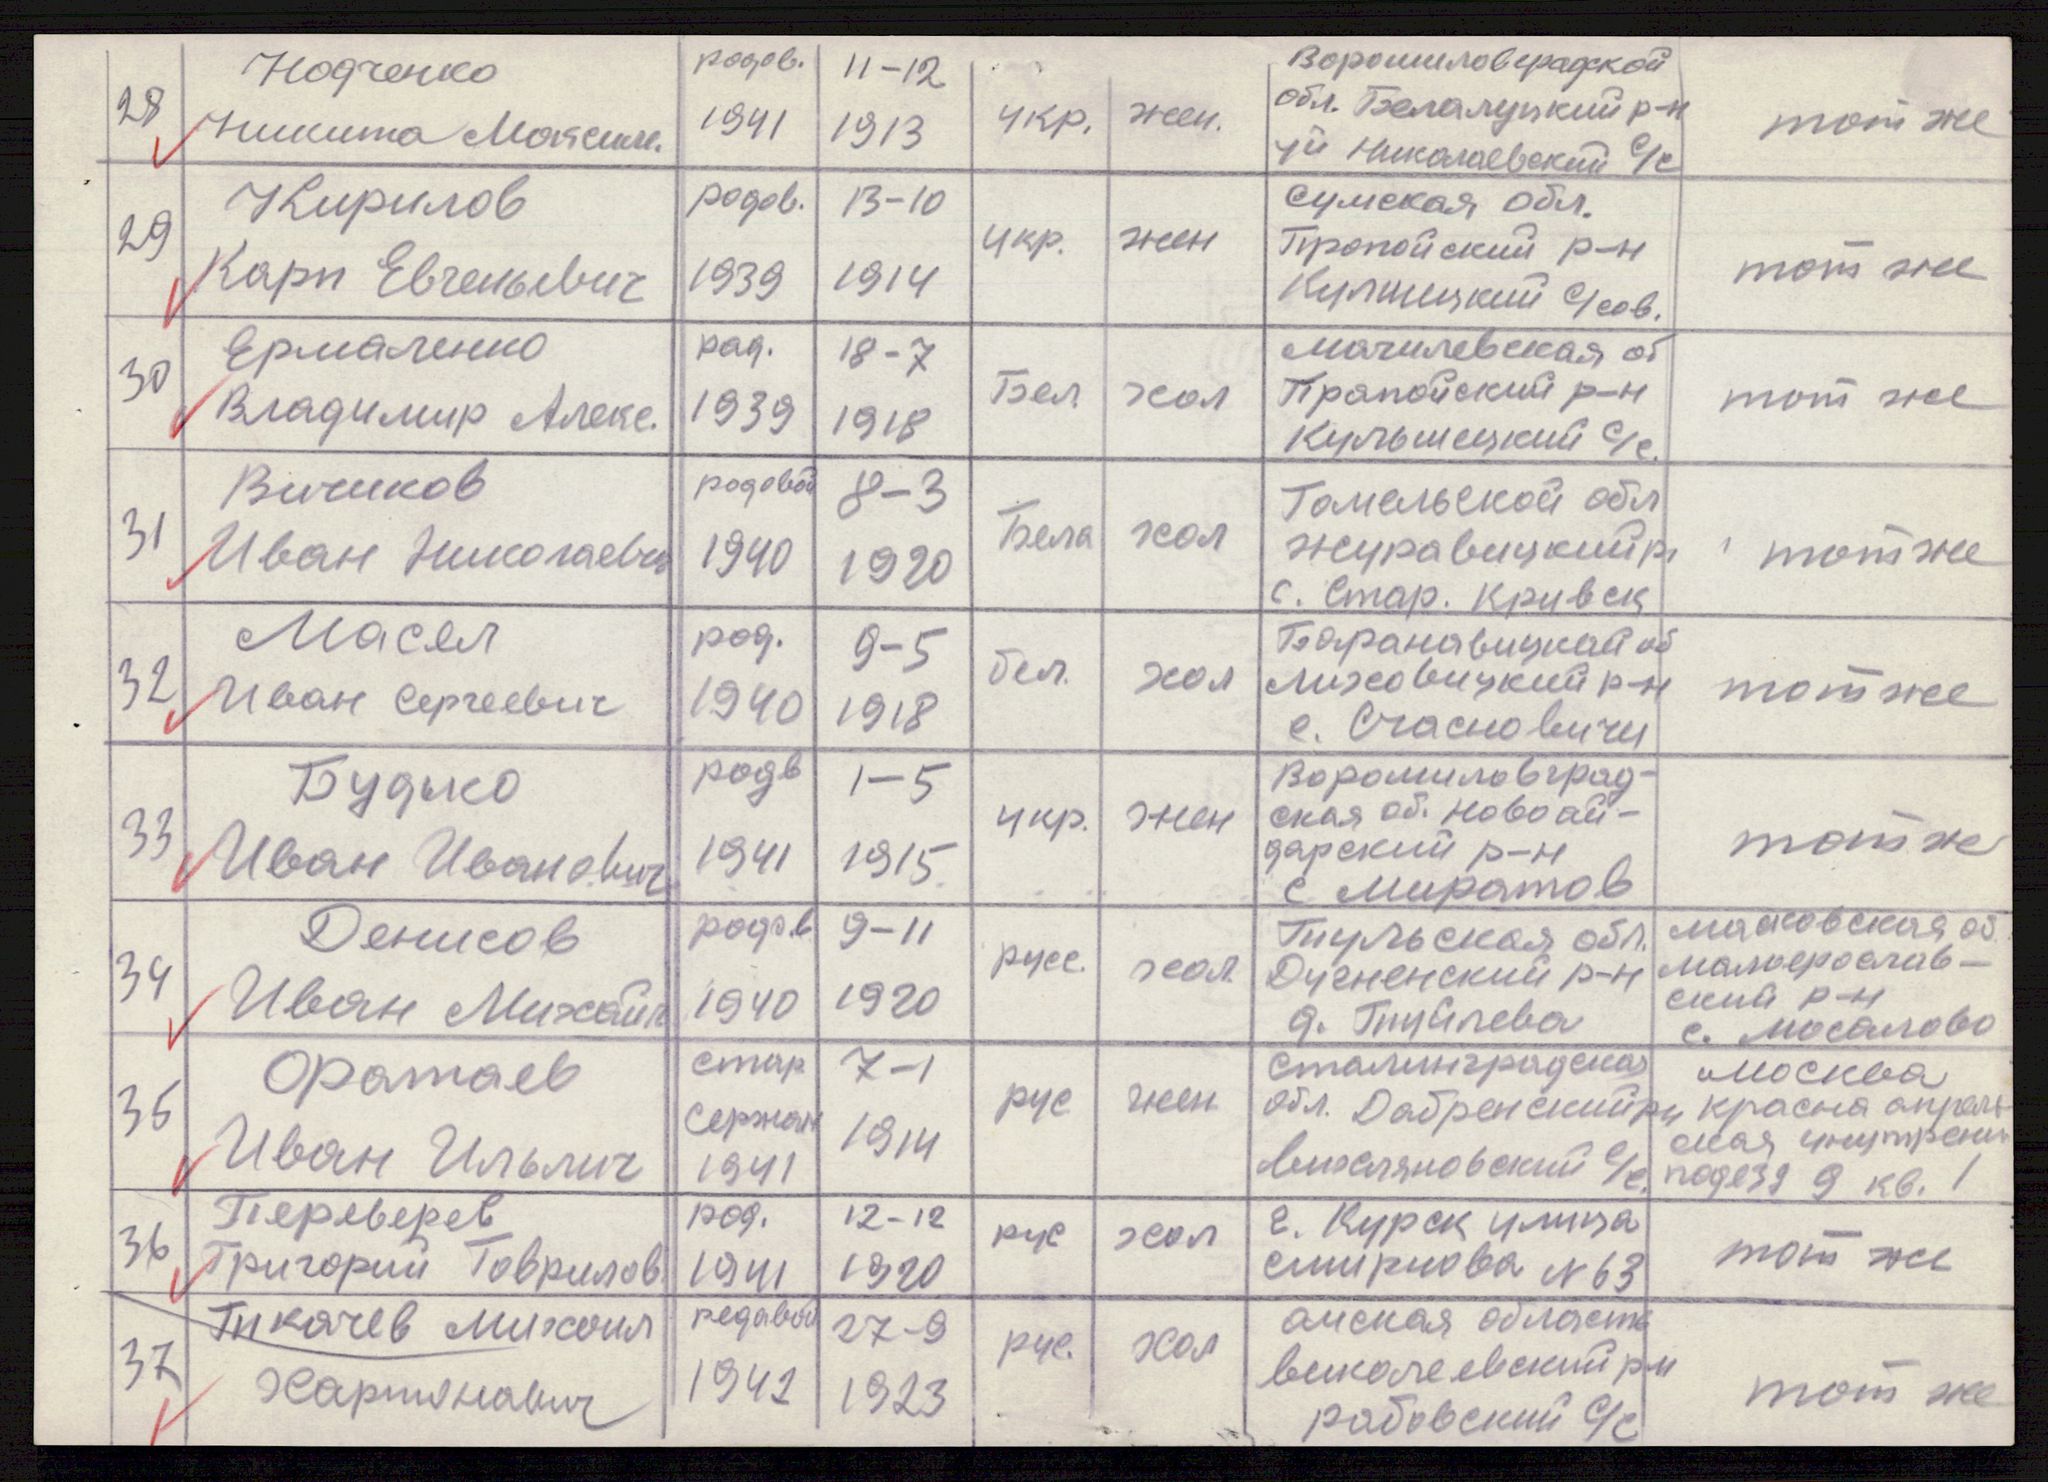 28
Нодченко
Никита Максим.
родов.
1941
11-12
1913
укр.
жен.
Ворошиловградской
обл. Белалуцкий р-н
Николаевский с/с
тот же
29
Кирилов
Карп Евгеньевич
родов.
1939
13-10
1914
укр.
жен
Сумская обл.
Пропойский р-н
Кулшицкий с/сов.
тот же
30
Ермаленко
Владимир Алекс.
рад.
1939
18-7
1918
Бел.
хол
Магилевская об
Прапойский р-н
Кульшецкий с/с.
тот же
31
Вичиков
Иван Николаевич
родовой
1940
8-3
1920
Бела
хол
Гомельской обл
журавицкий р
с. Стар. Кривск
тот же
32
Масел
Иван Сергеевич
род.
1940
9-5
1918
бел.
хол
Баранавицкай об
Ляховицкий р-н
с. Счасновичи
тот же
33
Будко
Иван Иванович
родв
1941
1-5
1915
укр.
жен
Ворошиловград-
ская об. Новоай-
дарский р-н
с Миратов
тот ж
34
Денисов
Иван Михайл
родов
1940
9-11
1920
русс.
хол.
Тульская обл.
Дугненский р-н
д. Труйлева
масковская об
малоерослав-
ский р-н
с. Мосалово
35
Оратаев
Иван Ильич
стар
Сержан
1941
7-1
1914
рус
жен
Сталинградская
обл. Дабренский рн
с/с.
Москва
красна апрель
ская
подезд 9 кв. 1
36
Переверев
Григорий Гаврилов
род.
1941
12-12
1920
рус
хол
г. Курск улица
Смирнова N 63
тот же
37
Ткачев Михаил
Харитонавич
редавой
1942
27-9
1923
рус.
хол
амская область
викалеевский рн
рабовский с/с
тот же